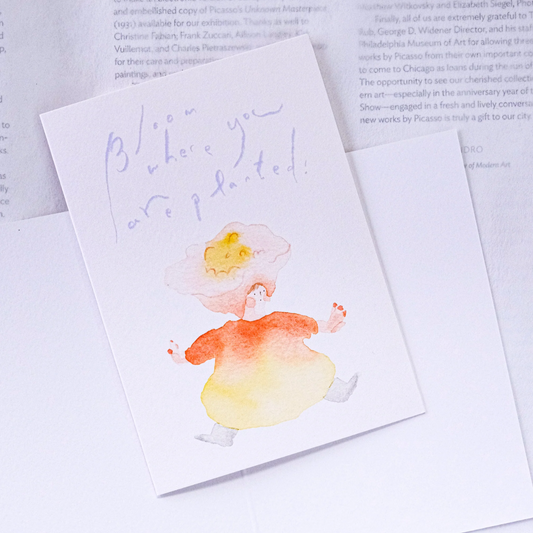 and embellished copy of Picasso's Unknown Masterpiece
(1931) available for our exhibition. Thanks as well to
Christine Fabian, Frank Zuccari, Allison Langley,
Vuillemot, and Charles Pietraszewski
for their care and
paintings, and
Matthew Witkovsky and Elizabeth Siegel,
Finally, all of us are extremely grateful to
Rub, George D. Widener Director, and his
Philadelphia Museum of Art for allowing
works by Picasso from their own important
to come to Chicago as loans during the run of
The opportunity to see our cherished
ern art—especially in the anniversary year of
Show—engaged in a fresh and lively
new works by Picasso is truly a gift to our city
of Modern Art
to
Bloom
where you
are planted!